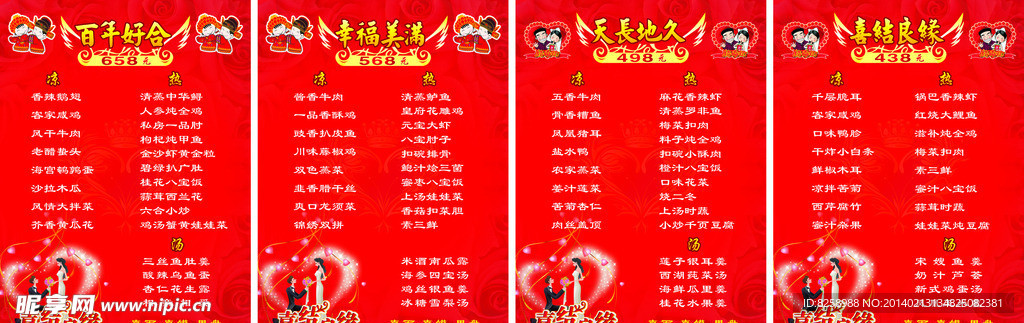 百年好合
658元
凉
热
香辣鹅翅
客家咸鸡
风干牛肉
老醋蛰头
海宫鹌鹑蛋
沙拉木瓜
风情大拌菜
芥香黄瓜花
清蒸中华鲟
人参炖全鸡
私房一品肘
枸杞炖甲鱼
金沙虾黄金粒
碧绿扒广肚
桂花八宝饭
蒜茸西兰花
六合小炒
鸡汤蟹黄娃娃菜
汤
三丝鱼肚羹
酸辣乌鱼蛋
杏仁花生露
幸福美满
568元
凉
热
酱香牛肉
一品香酥鸡
豉香扒皮鱼
川味藤椒鸡
双色蒸菜
韭香腊干丝
爽口龙须菜
锦绣双拼
清蒸鲈鱼
皇府花雕鸡
元宝大虾
八宝肘子
扣碗排骨
鲍汁烩三菌
蜜枣八宝饭
上汤娃娃菜
香菇扣菜胆
素三鲜
米酒南瓜露
海参四宝汤
鸡丝银鱼羹
冰糖雪梨汤
天長地久
498元
凉
热
五香牛肉
骨香糟鱼
凤凰猪耳
盐水鸭
农家蒸菜
姜汁莲菜
苦菊杏仁
肉丝盖顶
麻花香辣虾
清蒸罗非鱼
梅菜扣肉
料子炖全鸡
扣碗小酥肉
橙汁八宝饭
口味花菜
烧二冬
上汤时蔬
小炒千页豆腐
汤
莲子银耳羹
西湖莼菜汤
海鲜瓜里羹
桂花水果羹
喜結良緣
438元
凉
热
千层脆耳
客家咸鸡
口味鸭胗
干炸小白条
鲜椒木耳
凉拌苦菊
西芹腐竹
蜜汁杂果
锅巴香辣虾
红烧大鲤鱼
滋补炖全鸡
梅菜扣肉
素三鲜
蜜汁八宝饭
蒜茸时蔬
娃娃菜炖豆腐
汤
宋嫂鱼羹
奶汁芦荟
新式鸡蛋汤
昵享网 www.nipic.cn